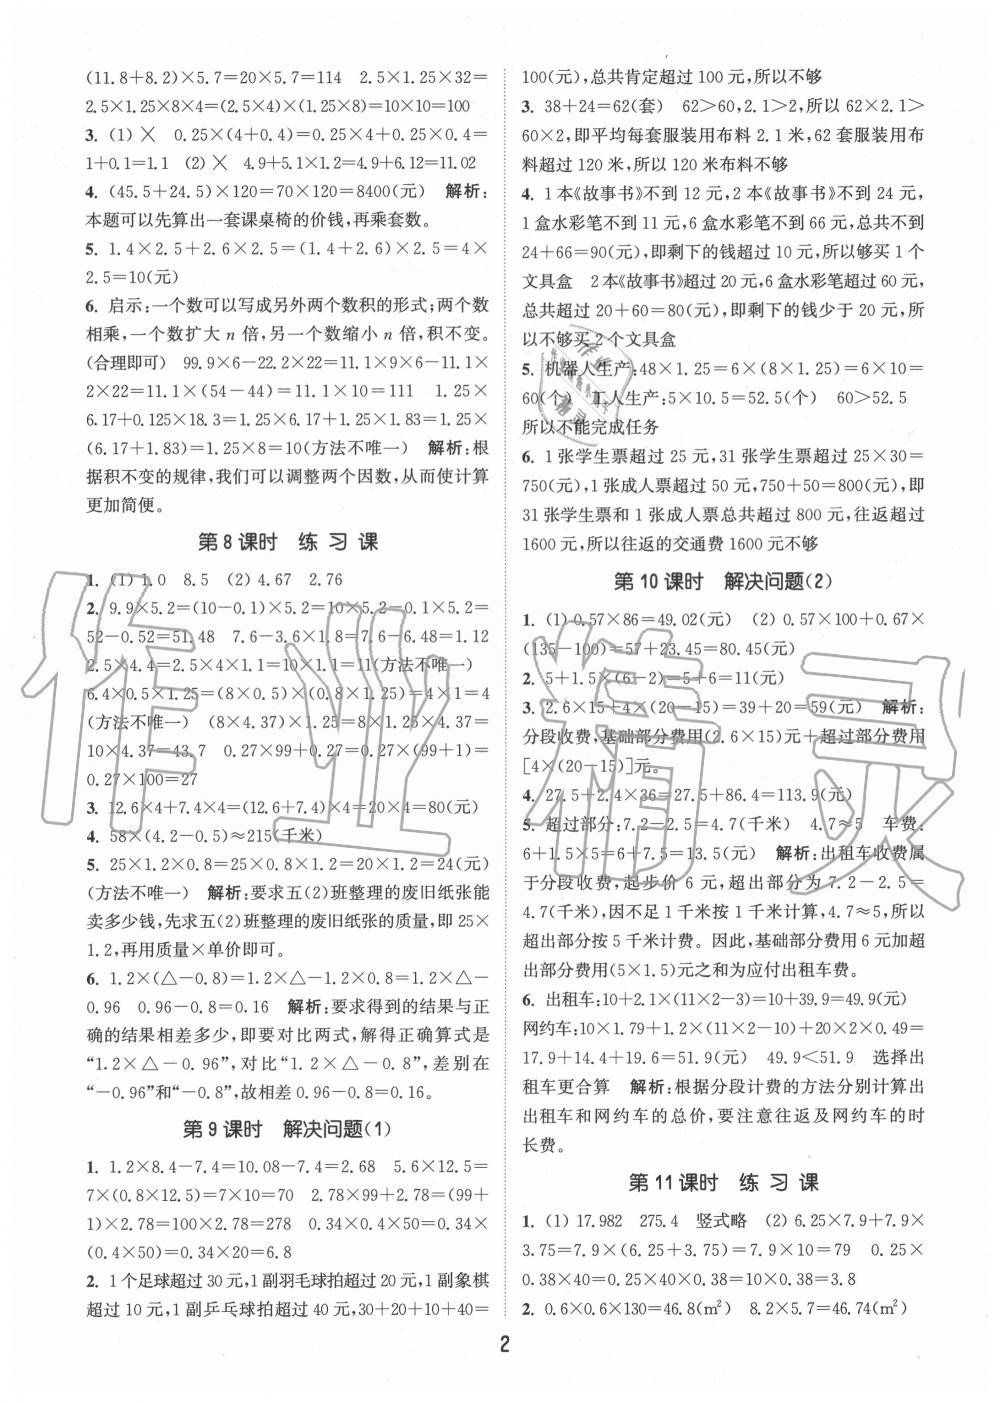 (11.8+8.2)×5.7=20×5.7=114　2.5×1.25×32=
2.5×1.25×8×4=(2.5×4)×(1.25×8)=10×10=100
3. (1)╳　0.25×(4+0.4)=0.25×4+0.25×0.4=
1+0.1=1.1　(2)╳　4.9+5.1×1.2=4.9+6.12=11.02
4. (45.5+24.5)×120=70×120=8400(元)　解析:
本题可以先算出一套课桌椅的价钱,再乘套数。
5. 1.4×2.5+2.6×2.5=(1.4+2.6)×2.5=4×
2.5=10(元)
6. 启示:一个数可以写成另外两个数积的形式;两个数
相乘,一个数扩大 n 倍,另一个数缩小 n 倍,积不变。
(合理即可)　99.9×6-22.2×22=11.1×9×6-11.1×
2×22=11.1×(54-44)=11.1×10=111　1.25×
6.17+0.125×18.3=1.25×6.17+1.25×1.83=1.25×
(6.17+1.83)=1.25×8=10(方法不唯一)　解析:根
据积不变的规律,我们可以调整两个因数,从而使计算
更加简便。
第 8 课时　练 习 课
1. (1) 1.0　8.5　(2) 4.67　2.76
2. 9.9×5.2=(10-0.1)×5.2=10×5.2-0.1×5.2=
52-0.52=51.48　7.6-3.6×1.8=7.6-6.48=1.12
2.5×4.4=2.5×4×1.1=10×1.1=11(方法不唯一)
6.4×0.5×1.25=(8×0.5)×(0.8×1.25)=4×1=4
(方法不唯一)　(8×4.37)×1.25=8×1.25×4.37=
10×4.37=43.7　0.27×99+0.27=0.27×(99+1)=
0.27×100=27
3. 12.6×4+7.4×4=(12.6+7.4)×4=20×4=80(元)
4. 58×(4.2-0.5)≈215(千米)
5. 25×1.2×0.8=25×0.8×1.2=20×1.2=24(元)
(方法不唯一)　解析:要求五(2)班整理的废旧纸张能
卖多少钱,先求五(2)班整理的废旧纸张的质量,即 25×
1.2,再用质量×单价即可。
6. 1.2×(△-0.8)=1.2×△-1.2×0.8=1.2×△-
0.96　0.96-0.8=0.16　解析:要求得到的结果与正
确的结果相差多少,即要对比两式,解得正确算式是
“1.2×△-0.96”,对比“1.2×△-0.8”,差别在
“-0.96”和“-0.8”,故相差 0.96-0.8=0.16。
第 9 课时　解决问题(1)
1. 1.2×8.4-7.4=10.08-7.4=2.68　5.6×12.5=
7×(0.8×12.5)=7×10=70　2.78×99+2.78=(99+
1)×2.78=100×2.78=278　0.34×0.4×50=0.34×
(0.4×50)=0.34×20=6.8
2. 1 个足球超过 30 元,1 副羽毛球拍超过 20 元,1 副象棋
超过 10 元,1 副乒乓球拍超过 40 元,30+20+10+40=
100(元),总共肯定超过 100 元,所以不够
3. 38+24=62(套)　62>60,2.1>2,所以 62×2.1>
60×2,即平均每套服装用布料 2.1 米,62 套服装用布
料超过 120 米,所以 120 米布料不够
4. 1 本《故事书》不到 12 元,2 本《故事书》不到 24 元,
1 盒水彩笔不到 11 元,6 盒水彩笔不到 66 元,总共不到
24+66=90(元),即剩下的钱超过 10 元,所以够买 1 个
文具盒　2 本《故事书》超过 20 元,6 盒水彩笔超过 60 元,
总共超过 20+60=80(元),即剩下的钱少于 20 元,所
以不够买 2 个文具盒
5. 机器人生产:48×1.25=6×(8×1.25)=6×10=
60(个)　工人生产:5×10.5=52.5(个)　60>52.5
所以不能完成任务
6. 1 张学生票超过 25 元,31 张学生票超过 25×30=
750(元),1 张成人票超过 50 元,750+50=800(元),即
31 张学生票和 1 张成人票总共超过 800 元,往返超过
1600 元,所以往返的交通费 1600 元不够
第 10 课时　解决问题(2)
1. (1) 0.57×86=49.02(元)　(2) 0.57×100+0.67×
(135-100)=57+23.45=80.45(元)
2. 5+1.5×(6-2)=5+6=11(元)
3. 2.6×15+4×(20-15)=39+20=59(元)　解析:
分段收费,基础部分费用(2.6×15)元+超过部分费用
[4×(20-15)]元。
4. 27.5+2.4×36=27.5+86.4=113.9(元)
5. 超过部分:7.2-2.5=4.7(千米)　4.7≈5　车费:
6+1.5×5=6+7.5=13.5(元)　解析:出租车收费属
于分段收费,起步价 6 元,超出部分为 7.2-2.5=
4.7(千米),因不足 1 千米按 1 千米计算,4.7≈5,所以
超出部分按 5 千米计费。因此,基础部分费用 6 元加超
出部分费用(5×1.5)元之和为应付出租车费。
6. 出租车:10+2.1×(11×2-3)=10+39.9=49.9(元)
网约车:10×1.79+1.2×(11×2-10)+20×2×0.49=
17.9+14.4+19.6=51.9(元)　49.9<51.9　选择出
租车更合算　解析:根据分段计费的方法分别计算出
出租车和网约车的总价,要注意往返及网约车的时
长费。
第 11 课时　练 习 课
1. (1) 17.982　275.4　竖式略　(2) 6.25×7.9+7.9×
3.75=7.9×(6.25+3.75)=7.9×10=79　0.25×
0.38×40=0.25×40×0.38=10×0.38=3.8
2. 0.6×0.6×130=46.8(m²)　8.2×5.7=46.74(m²)
2
作业精灵